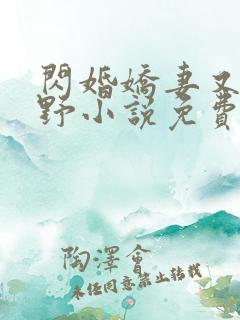 閃婚嬌妻又
野小說免費
陶澤會
未经同意禁止转载